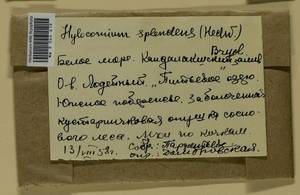 Hylocomium splendens (Hedw.)
Bryol.
Белое море. Кандалакшский залив
О-в. Лодейный, "Питьевое озеро.
Южное побережье. Заболоченная
кустарничковая опушка сосно-
вого леса. Мхи по кочкам
13/VIII 58г. Собр:
опр: